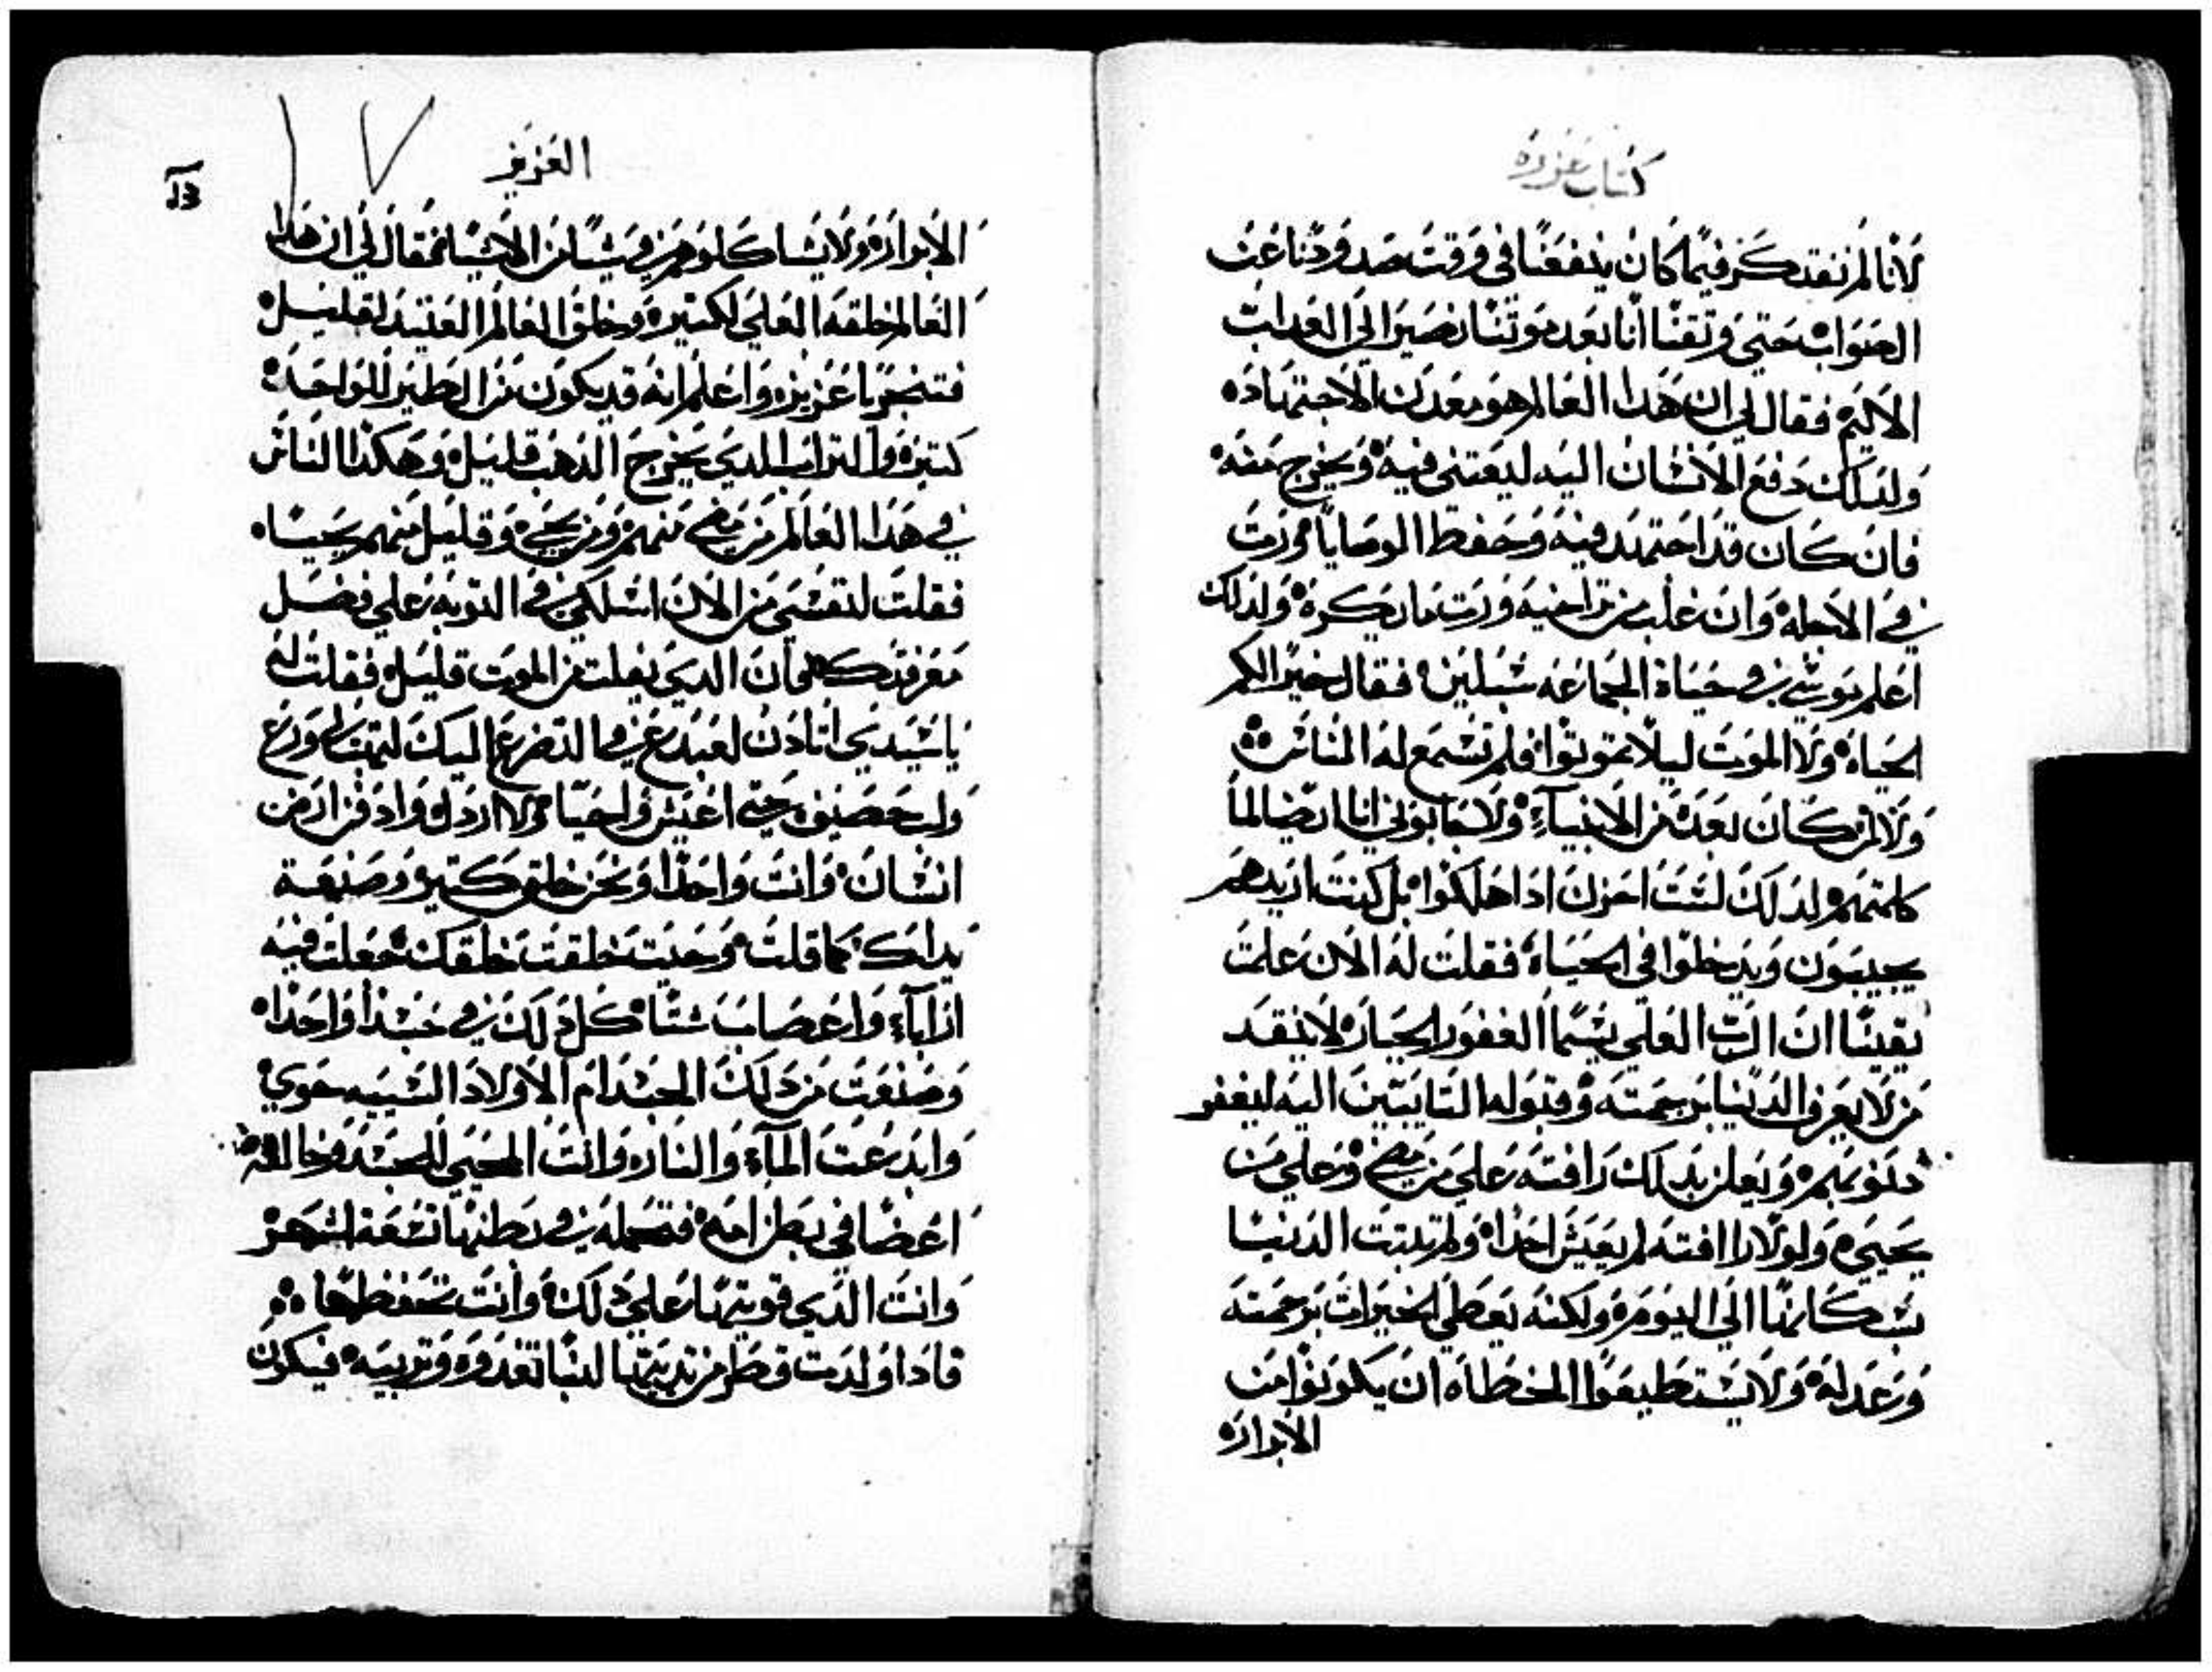 كتاب عزره
لانا لم نفتكر فيما كان ينفعنا في وقت صدودنا عن
الصواب حتي وتقنا انا بعد موتنا نصير الي العداب
الاليم فقال لي ان هدا العالم هو معدن الاجتهاد
ولدلك دفع الانسان اليه ليعتني فيه ويخرج منه
فان كان قد اجتهد فيه وحفظ الوصايا ورت
في الاجله وان غلب من تراخيه ورت ما يكره ولدلك
اعلم موسي في حياة الجماعه سبلين فقال خيرا لكم
الحياة ولا الموت ليلا تموتوا فلم تسمع له الناس
ولا لمن كان بعده من الانبياء ولا يجابوني انا ايضا لما
كلمتهم لدلك لست احزن ادا هلكوا بل كنت اريدهم
يجيبون ويدخلوا في الحياة فقلت له الان علمت
يقينا ان الرب العلي يسما الغفور الجبار لا ينقد
من لا يعرف الدنيا برحمته وقبوله التايبين اليه ليغفر
دنوبهم ويعلن بدلك رافته علي من مضي وعلي من
يجيء ولولا رافته لم يعيش احدا ولم تتبت الدنيا
بسكانها الي اليوم ولكنه يعطي الخيرات برحمته
وعدله ولا يستطيعوا الخطاه ان يكونوا من
الابرار
العزيز
الابرار ولا يشاكلوهم في شيا من الاشيا تم قال لي ان هدا
العالم خلقه العلي لكتيره وخلق العالم العتيد لقليل
فتبجر يا عزيز واعلم انه قد يكون من الطين المواحد
كتير والتراب الدي يخرج الدهب قليل وهكدا الناس
في هدا العالم من مضي منهم ومن يجي وقليل منهم يحيا
فقلت لنفسي من الان اسلكي في التوبه علي فضل
معرفتك فان الدي يفلت من الموت قليل فقلت
يا سيدي اتادن لعبدك في التضرع اليك
حتي اعيش واحيا ولا اردل وادفن ارض
انسان وانت واحدا ونحن خلق كتير وصنعة
يداك كما قلت وحيت خلقت خلقك جعلت فيه
ارآباء واعصاب شتا كل دلك في جسدا واحدا
وصنعت من دلك الجسد ام الاولاد الشبيه حوي
وابدعت المآء والنار وانت المحيي للجسد وخالقه
اعضا في بطن امه فتحمله في بطنها تسعة اشهر
وانت الدي قويتها علي دلك وانت تحفظها
فادا ولدت قطر من تدييها لبنا تغدوه وتربيه فيكون